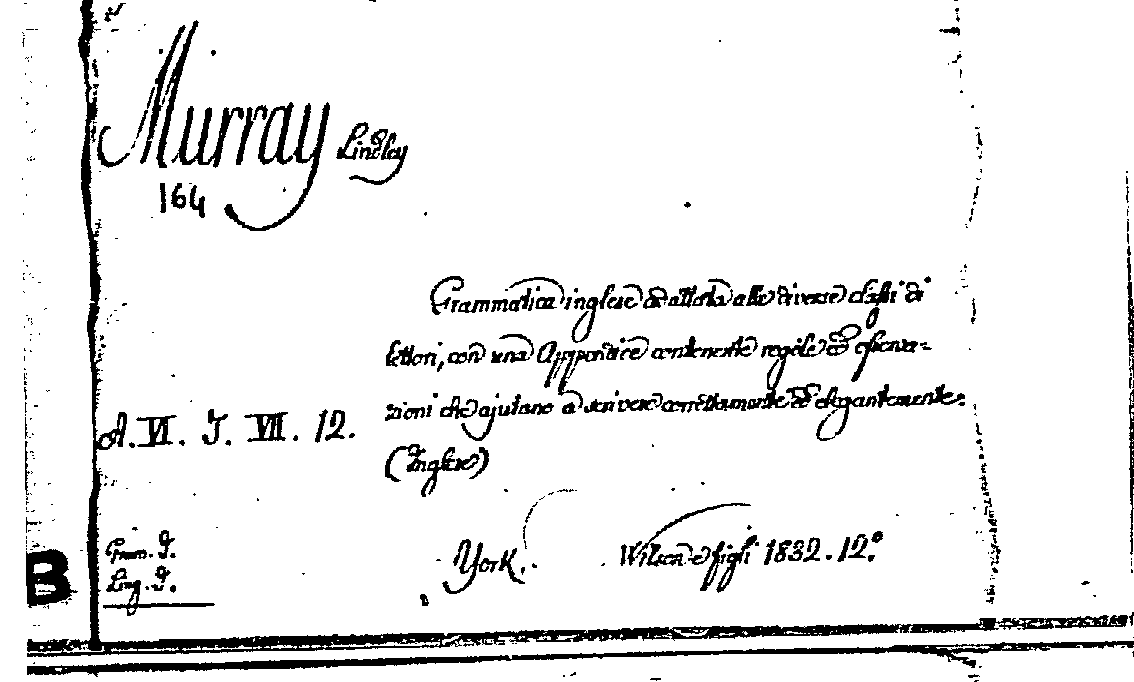 Murray Lindley
164
Grammatica inglese adattata alle diverse classi di
lettori, con una Appendice contenente regole ed osserva-
zioni che ajutano a scrivere correttamente ed elegantemente.
A. VI. J. VII. 12.
(Inglese)
Gram. J.
York. Wilson e figli 1832. 12.º
Ling. J.
B